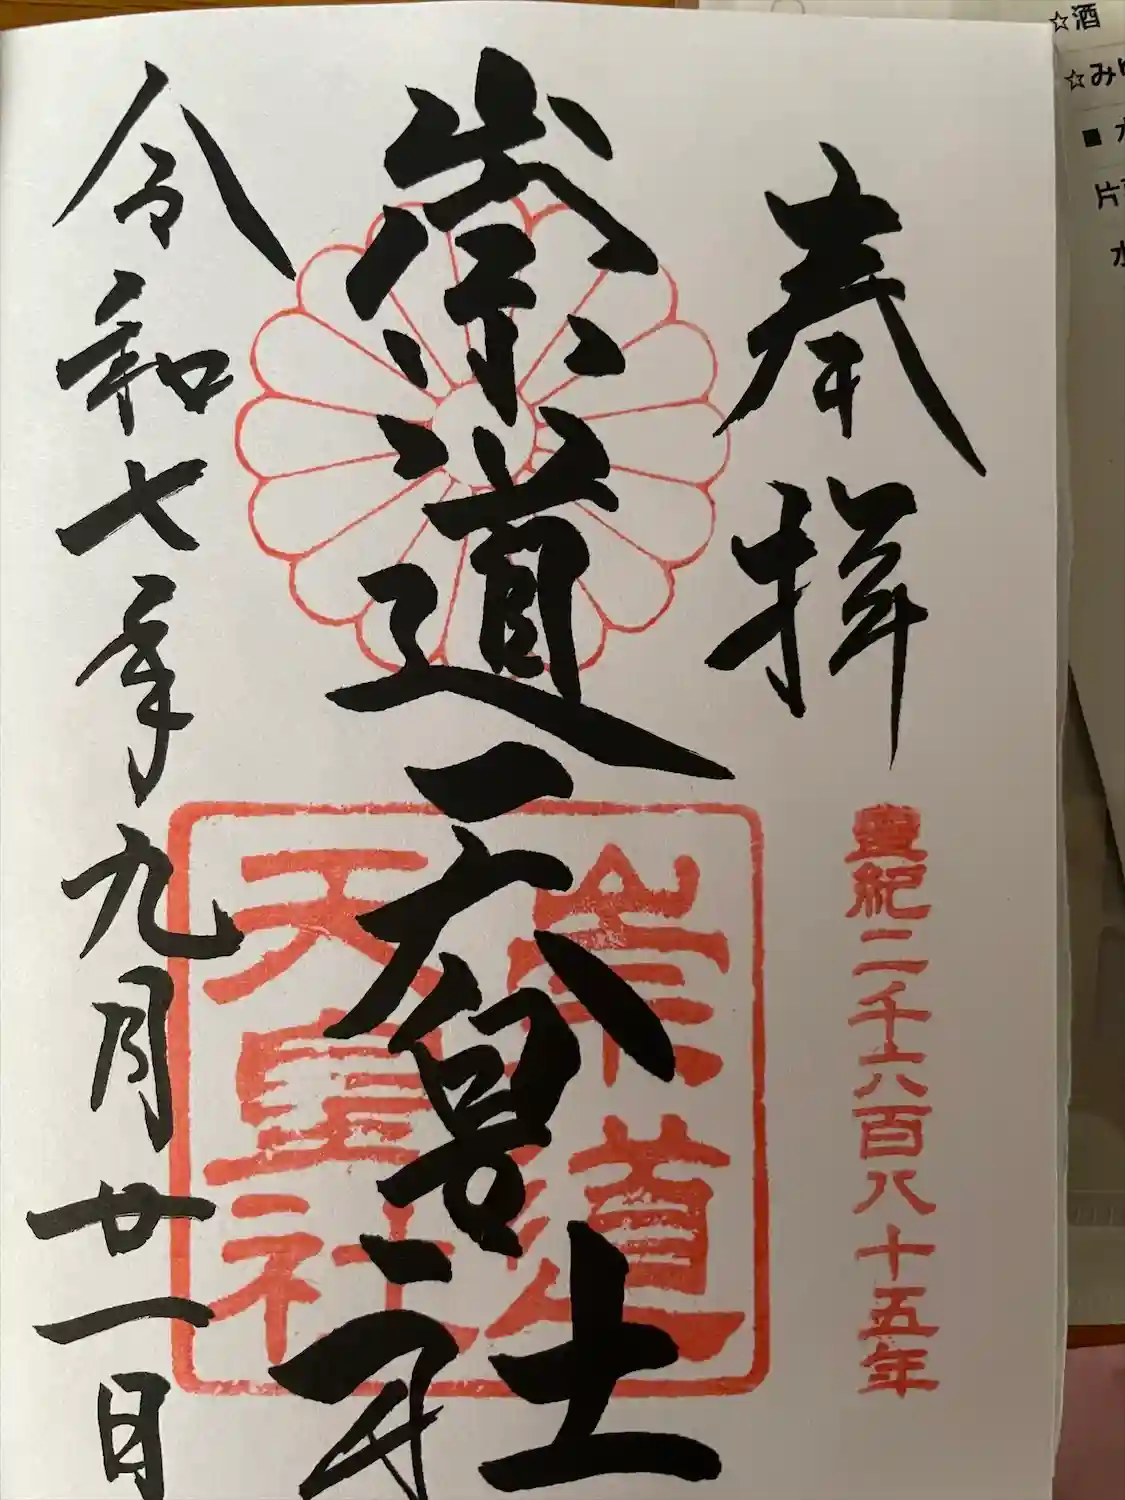 ☆酒
☆み
片
水
奉拝
皇紀二千六百八十五年
崇道天皇社
崇道
天皇社
令和七年九月廿一日